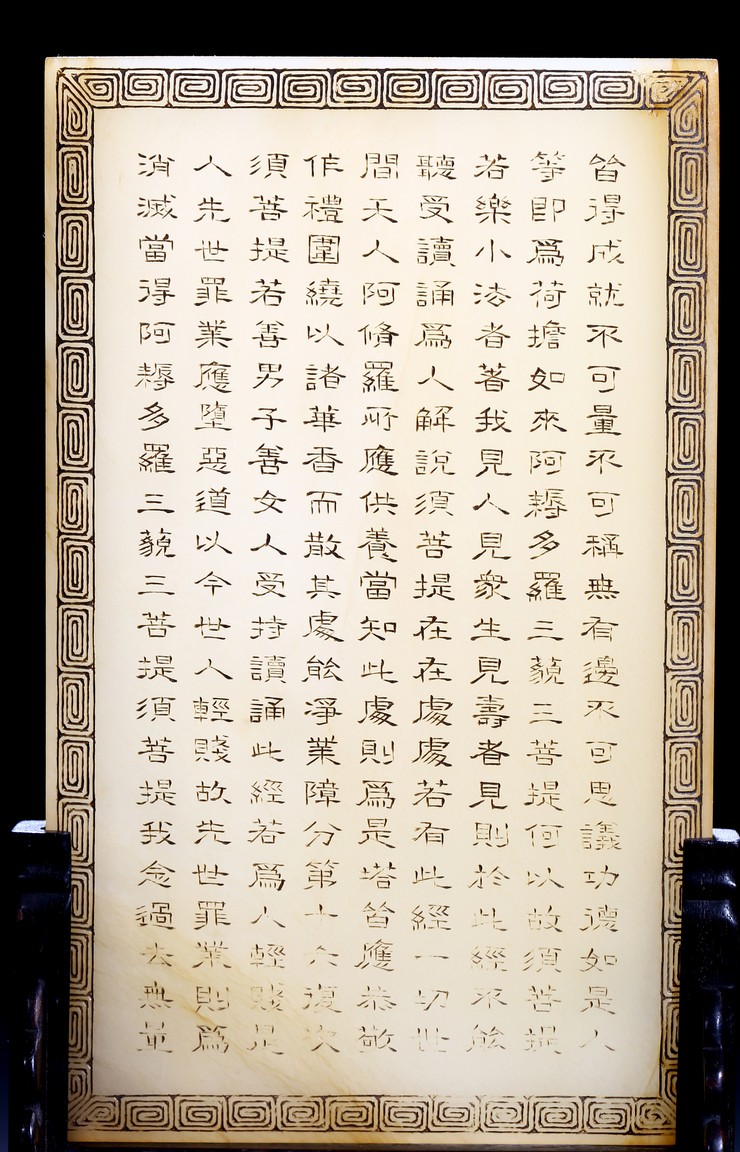 皆得成就不可量不可稱無有邊不可思議功德如是人
等即爲荷擔如來阿耨多羅三藐三菩提何以故須菩提
若樂小法者著我見人見衆生見壽者見則於此經不能
聽受讀誦爲人解說須菩提在在處處若有此經一切世
間天人阿脩羅所應供養當知此處則爲是塔皆應恭敬
作禮圍繞以諸華香而散其處能淨業障分第十六復次
須菩提若善男子善女人受持讀誦此經若爲人輕賤是
人先世罪業應墮惡道以今世人輕賤故先世罪業則爲
消滅當得阿耨多羅三藐三菩提須菩提我念過去無量